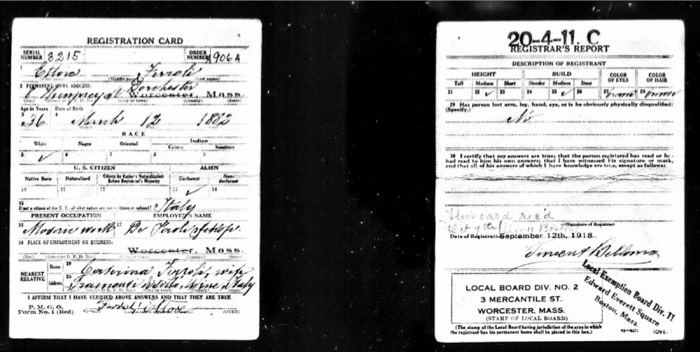 REGISTRATION CARD
SERIAL NUMBER 3215
ORDER NUMBER 906A
Ettore Tiroli
2 PERMANENT HOME ADDRESS:
Dorchester
Worcester, Mass.
Age in Years Date of Birth
36 March 12 1882
RACE
White Negro Oriental Indian
Citizen Noncitizen
U. S. CITIZEN ALIEN
Native Born Naturalized Citizen by Father's Naturalization Before Registrant's Majority Declarant Non-declarant
10 11 12 13 14
15 If not a citizen of the U. S., of what nation are you a citizen or subject? Italy
PRESENT OCCUPATION EMPLOYER'S NAME
Mosaic work De Paoli
18 PLACE OF EMPLOYMENT OR BUSINESS:
Worcester, Mass.
NEAREST RELATIVE
Name Caterina Tiroli, wife
Address Tramonti Udine Italy
I AFFIRM THAT I HAVE VERIFIED ABOVE ANSWERS AND THAT THEY ARE TRUE
P. M. G. O.
Form No. 1 (Red)
(OVER)
20-4-11. C
REGISTRAR'S REPORT
DESCRIPTION OF REGISTRANT
HEIGHT BUILD COLOR OF EYES COLOR OF HAIR
Tall Medium Short Slender Medium Stout
21 22 23 24 25 26 27 Brown 28 Brown
29 Has person lost arm, leg, hand, eye, or is he obviously physically disqualified? (Specify.)
No
30 I certify that my answers are true; that the person registered has read or has had read to him his own answers; that I have witnessed his signature or mark, and that all of his answers of which I have knowledge are true, except as follows:
This card rec'd
(Signature of Registrar)
Date of Registration September 12th, 1918
Vincent
LOCAL BOARD DIV. NO. 2
3 MERCANTILE ST.
WORCESTER, MASS.
(STAMP OF LOCAL BOARD)
Local Exemption Board Div. 11
Edward Everett Square
Boston, Mass.
(The stamp of the Local Board having jurisdiction of the area in which the registrant has his permanent home shall be placed in this box.)
(OVER)